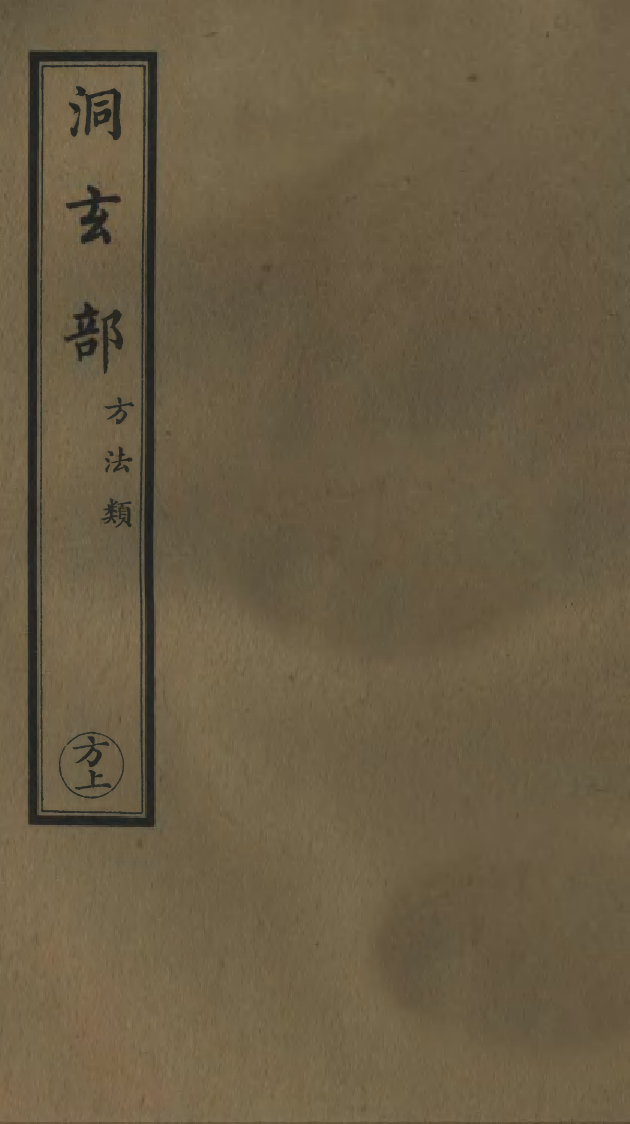 洞玄部
方法類
方上